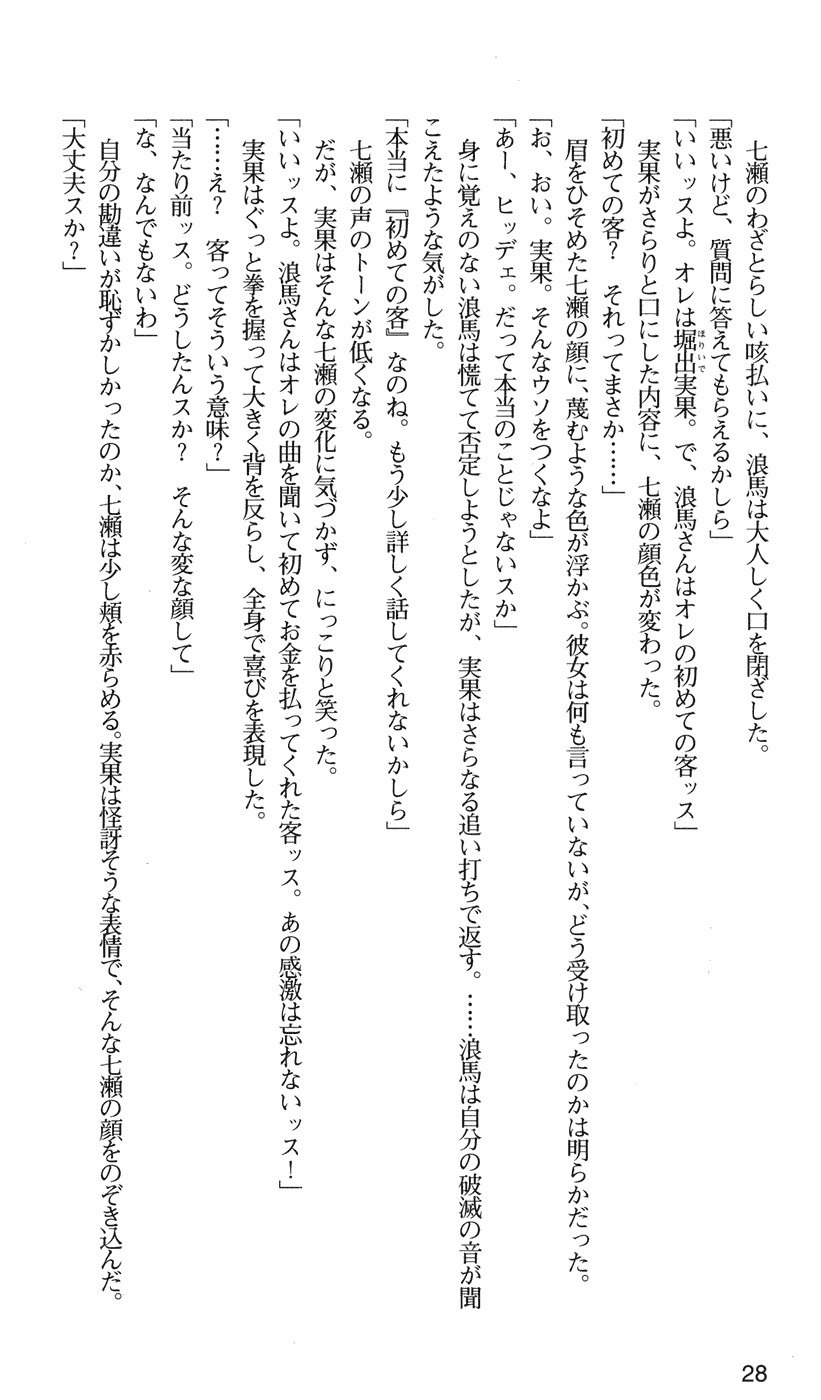 七瀬のわざとらしい咳払いに、浪馬は大人しく口を閉ざした。
「悪いけど、質問に答えてもらえるかしら」
「いいッスよ。オレは堀出実果。で、浪馬さんはオレの初めての客ッス」
ほりいで
　実果がさらりと口にした内容に、七瀬の顔色が変わった。
「初めての客？　それってまさか……」
　眉をひそめた七瀬の顔に、蔑むような色が浮かぶ。彼女は何も言っていないが、どう受け取ったのかは明らかだった。
「お、おい。実果。そんなウソをつくなよ」
「あー、ヒッデェ。だって本当のことじゃないスか」
　身に覚えのない浪馬は慌てて否定しようとしたが、実果はさらなる追い打ちで返す。……浪馬は自分の破滅の音が聞
こえたような気がした。
「本当に『初めての客』なのね。もう少し詳しく話してくれないかしら」
　七瀬の声のトーンが低くなる。
　だが、実果はそんな七瀬の変化に気づかず、にっこりと笑った。
「いいッスよ。浪馬さんはオレの曲を聞いて初めてお金を払ってくれた客ッス。あの感激は忘れないッス！」
　実果はぐっと拳を握って大きく背を反らし、全身で喜びを表現した。
「……え？　客ってそういう意味？」
「当たり前ッス。どうしたんスか？　そんな変な顔して」
「な、なんでもないわ」
　自分の勘違いが恥ずかしかったのか、七瀬は少し頬を赤らめる。実果は怪訝そうな表情で、そんな七瀬の顔をのぞき込んだ。
「大丈夫スか？」
28